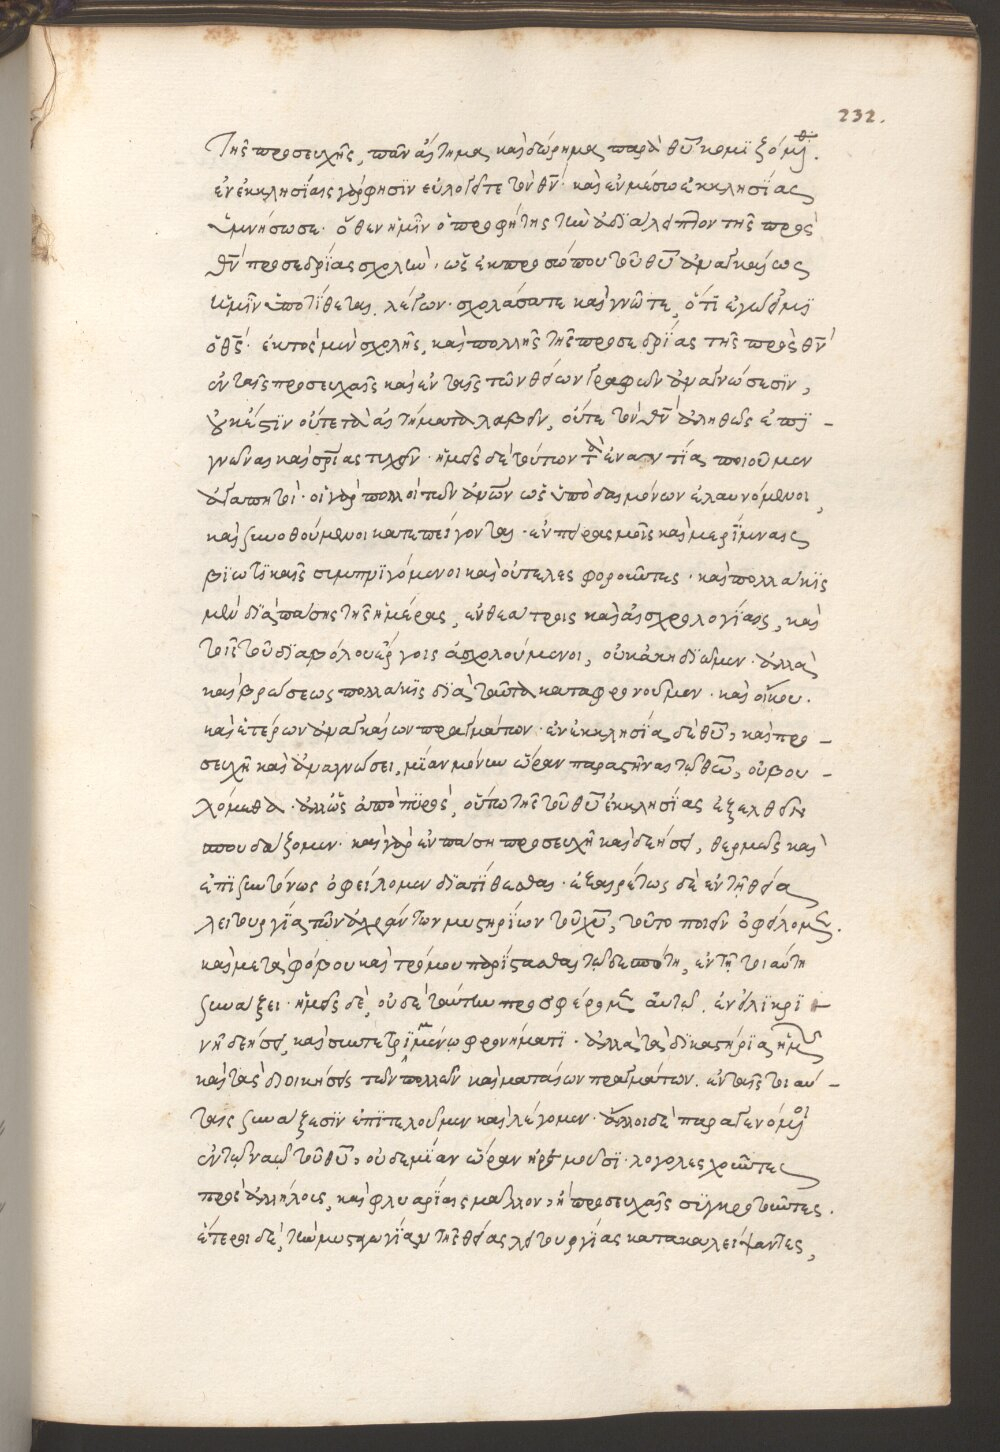 232.
τῆς προσευχῆς, πᾶν αἴτημα καὶ δώρημα παρὰ θῦ κομϊζόμεθ.
ἐν ἐκκλησίαις γάρ φησϊν εὐλογεῖτε τὸν θν̄· καὶ ἐν μέσω ἐκκλησΐας
ὑμνήσω σε· ὅθεν ἡμῖν ὁ προφήτης τὴν ἀδϊάλειπτον τῆς πρὸς
θν̄ προσεδρΐας σχολὴν, ὡς ἐκ προσώπου τοῦ θῦ ἀναγκαίως
ὑμῖν ὑποτΐθεται λέγων· σχολάσατε καὶ γνῶτε, ὅτϊ ἐγώ εἰμϊ
ὁ θς̄· ἐκτὸς μὲν σχολῆς, καὶ πολλῆς τῆς προσεδρΐας τῆς πρὸς θν̄
ἐν ταῖς προσευχαῖς καὶ ἐν ταῖς τῶν θείων γραφῶν ἀναγνώσεσϊν,
οὐκ ἔστϊν οὔτε τὰ αἰτήματα λαβεῖν, οὔτε τὸν θν̄ ἀληθῶς ἐπϊ-
γνῶναι καὶ σρΐας τυχεῖν· ἡμεῖς δὲ τούτων τὰ ἐναντΐα ποιοῦμεν
ἀγαπητοί· οἱ γὰρ πολλοὶ τῶν ἀνῶν ὡς ὑπὸ δαιμόνων ἐλαυνόμενοι,
καὶ συνωθούμενοι κατεπείγονται· ἐν πειρασμοῖς καὶ μερΐμναις
βϊωτϊκαῖς συμπνϊγόμενοι καὶ οὐ τελεσφοροῦντες· καὶ πολλάκϊς
μὲν δϊὰ πάσης τῆς ἡμέρας, ἐν θεάτροις καὶ αἰσχρολογΐαις, καὶ
τοῖς τοῦ δϊαβόλου ἔργοις ἀσχολούμενοι, οὐκ ἀκηδϊῶμεν· ἀλλὰ
καὶ βρώσεως πολλάκϊς δϊὰ ταῦτα καταφρονοῦμεν· καὶ οἴκου·
καὶ ἑτέρων ἀναγκαίων πραγμάτων· ἐν ἐκκλησΐα δὲ θῦ, καὶ προ-
σευχῆ καὶ ἀναγνώσει, μΐαν μόνην ὥραν παραστῆναι τῶ θῶ, οὐ βου-
λόμεθα· ἀλλ' ὡς ἀπὸ πυρὸς, οὕτω τῆς τοῦ θῦ ἐκκλησΐας ἐξελθεῖν
σπουδάζομεν· καὶ γὰρ ἐν πάση προσευχῆ καὶ δεήσει, θερμῶς καὶ
ἐπϊσυντόνως ὀφείλομεν δϊατΐθεσθαι· ἐξαιρέτως δὲ ἐν τῆ θεία
λειτουργΐα τῶν ἀχράντων μυστηρΐων τοῦ χῦ, τοῦτο ποιεῖν ὀφείλομεν.
καὶ μετὰ φόβου καὶ τρόμου παρΐστασθαι τῶ δεσπότη, ἐν τῆ τοιαύτη
συνάξει· ἡμεῖς δὲ, οὐδὲ ταύτην προσφέρομεν αὐτῶ. ἐν εἰλϊκρϊ-
νῆ δεήσει, καὶ συντετρϊμμένω φρονήματϊ· ἀλλὰ τὰ δϊκαστήρϊα ἡμῶν
καὶ τὰς διοικήσεις τῶν πολλῶν καὶ ματαίων πραγμάτων. ἐν ταῖς τοιαύ-
ταις συνάξεσϊν ἐπϊτελοῦμεν καὶ λέγομεν· ἄλλοι δὲ παραγενόμενοι
ἐν τῶ ναῶ τοῦ θῦ, οὐδεμΐαν ὥραν ἠρεμοῦσϊ· λογολεσχοῦντες
πρὸς ἀλλήλους, καὶ φλυαρΐαις μᾶλλον, ἢ προσευχαῖς συγκροτοῦντες.
ἕτεροι δὲ, τὴν μυσταγωγΐαν τῆς θείας λειτουργΐας κατακαλείψαντες,